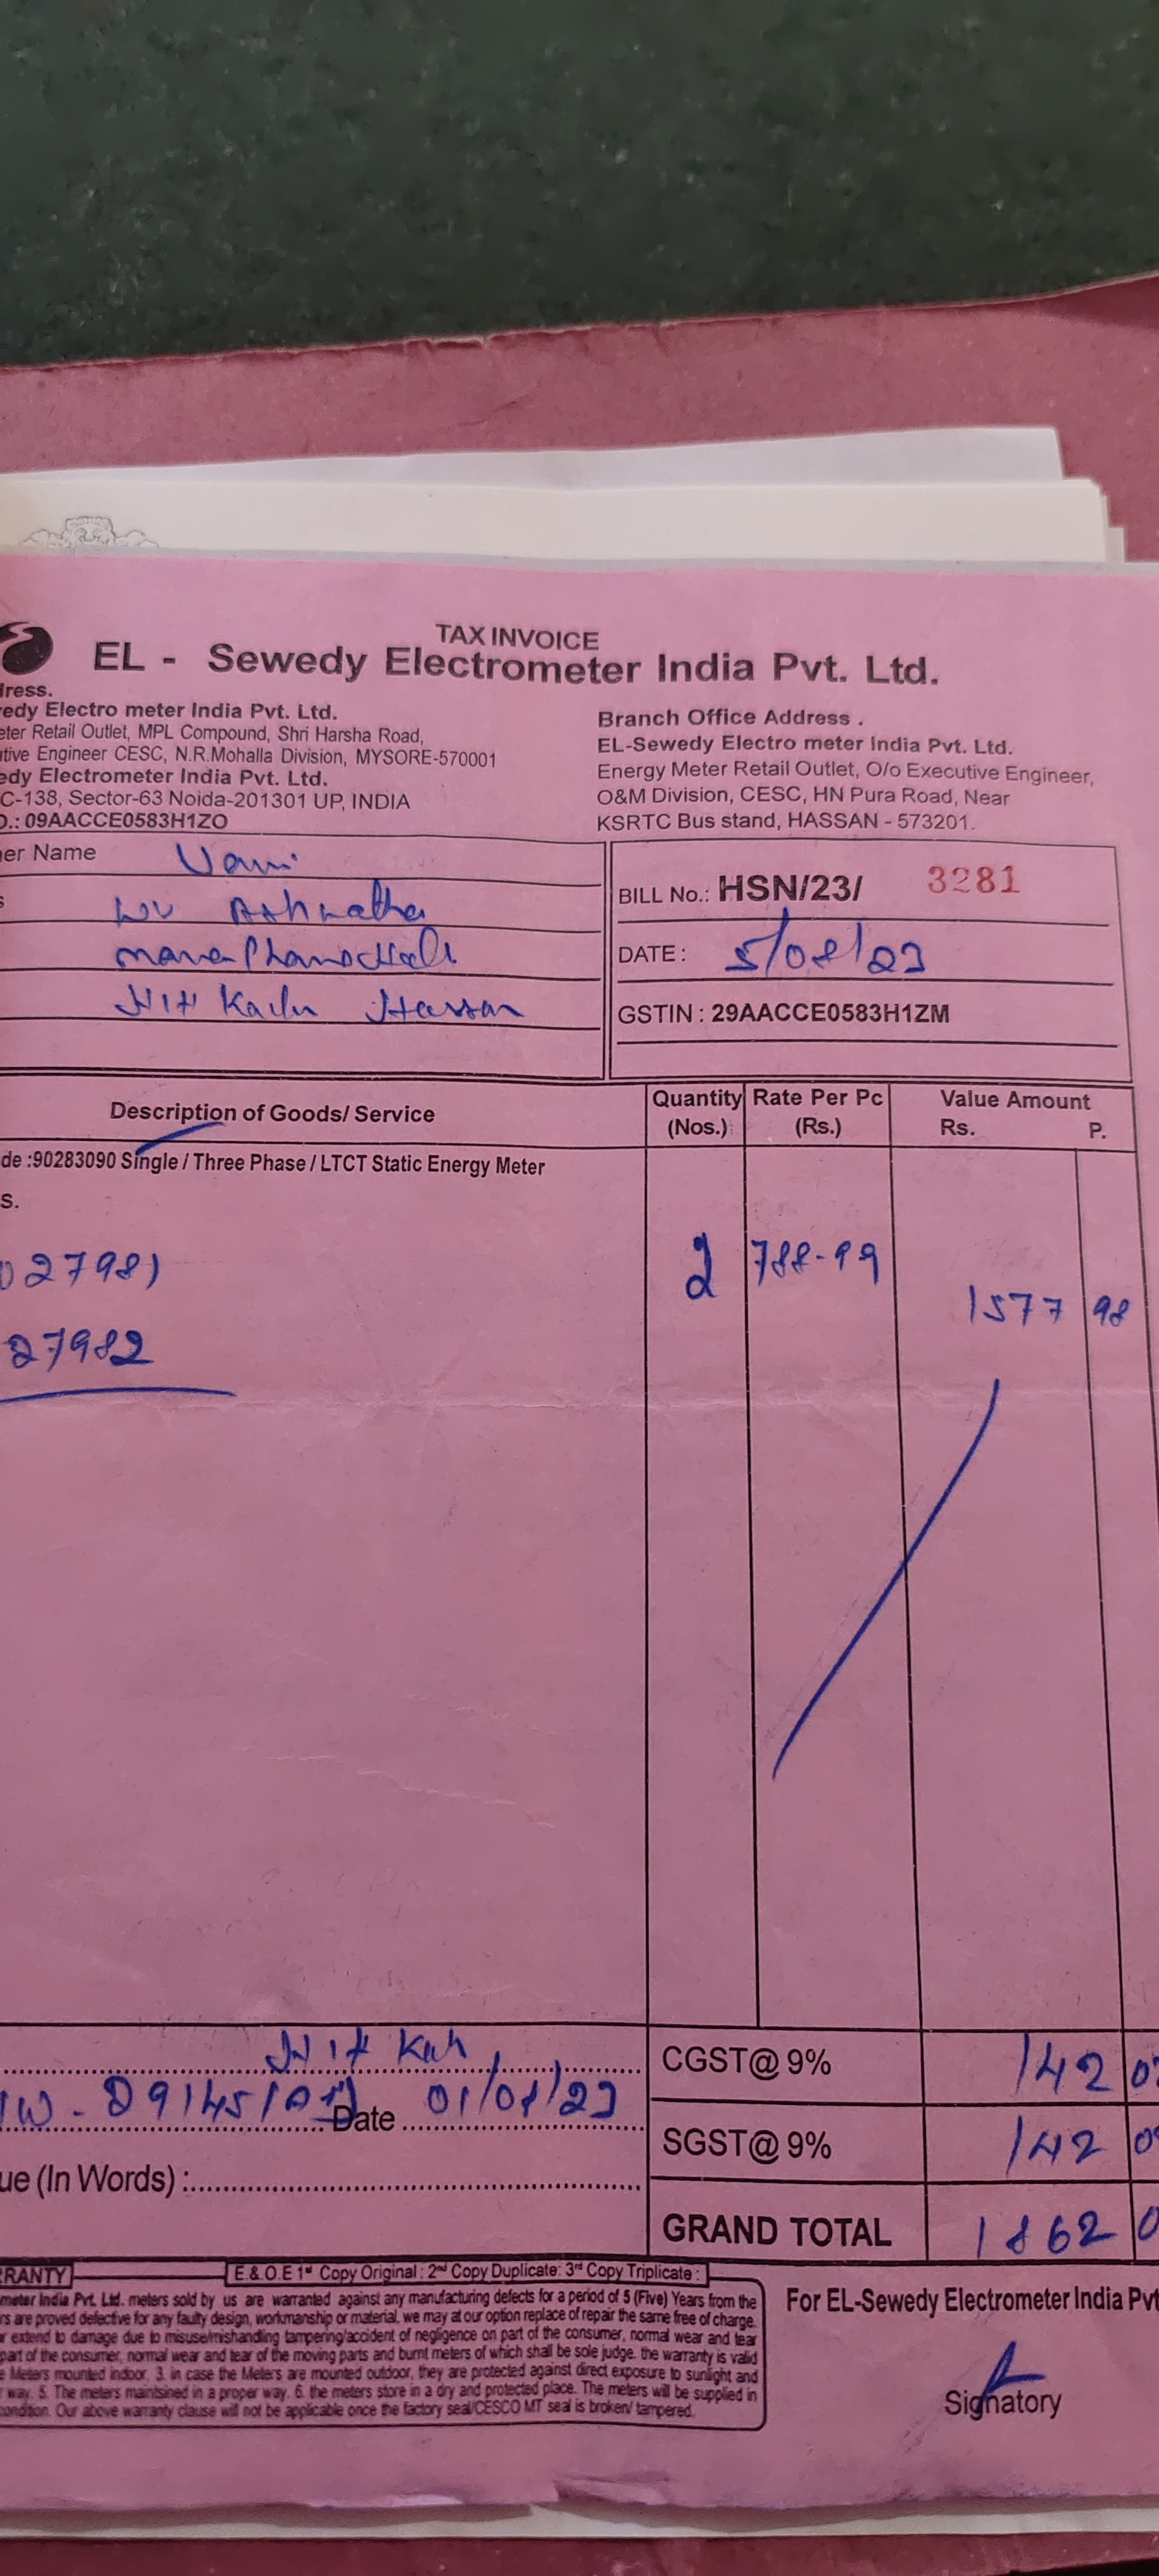 TAX INVOICE
EL - Sewedy Electrometer India Pvt. Ltd.
ress.
edy Electro meter India Pvt. Ltd.
eter Retail Outlet, MPL Compound, Shri Harsha Road,
tive Engineer CESC, N.R.Mohalla Division, MYSORE-570001
edy Electrometer India Pvt. Ltd.
C-138, Sector-63 Noida-201301 UP, INDIA
O.: 09AACCE0583H1ZO
Branch Office Address .
EL-Sewedy Electro meter India Pvt. Ltd.
Energy Meter Retail Outlet, O/o Executive Engineer,
O&M Division, CESC, HN Pura Road, Near
KSRTC Bus stand, HASSAN - 573201.
er Name Vani
Ashwatha
Hassan
BILL No.: HSN/23/ 3281
DATE : 5/08/23
GSTIN : 29AACCE0583H1ZM
Description of Goods/ Service Quantity (Nos.) Rate Per Pc (Rs.) Value Amount Rs. P.
de :90283090 Single / Three Phase / LTCT Static Energy Meter
s.
27981 2 788-99 1577 98
27982
CGST@ 9% 142
Date 01/08/23
SGST@ 9% 142
ue (In Words) :
GRAND TOTAL 1862
RRANTY E.& O.E 1st Copy Original : 2nd Copy Duplicate: 3rd Copy Triplicate :
meter India Pvt. Ltd. meters sold by us are warranted against any manufacturing defects for a period of 5 (Five) Years from the
rs are proved defective for any faulty design, workmanship or material, we may at our option replace of repair the same free of charge.
r extend to damage due to misuse/mishandling tampering/accident of negligence on part of the consumer, normal wear and tear
part of the consumer, normal wear and tear of the moving parts and burnt meters of which shall be sole judge. the warranty is valid
e Meters mounted indoor. 3. in case the Meters are mounted outdoor, they are protected against direct exposure to sunlight and
way. 5. The meters maintsined in a proper way. 6. the meters store in a dry and protected place. The meters will be supplied in
condition. Our above warranty clause will not be applicable once the factory seal/CESCO MT seal is broken/ tampered.
For EL-Sewedy Electrometer India Pvt
Signatory